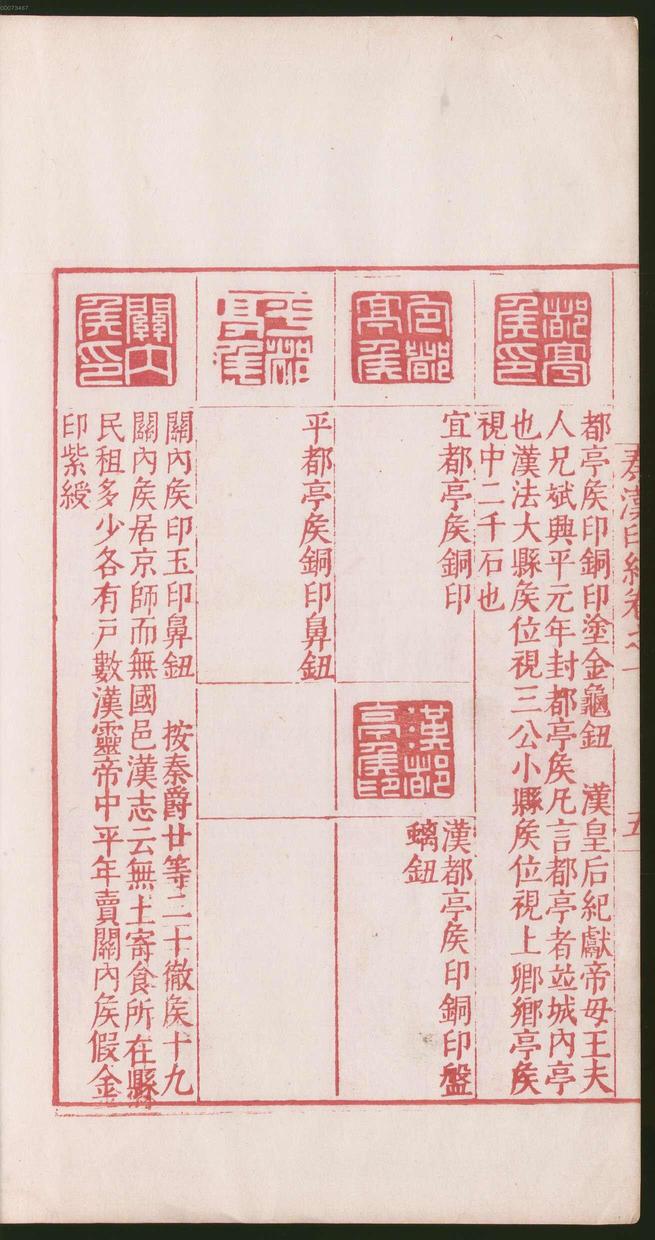 00073467
秦漢印統卷之一
五
都亭侯印
都亭矦印銅印塗金龜鈕　漢皇后紀獻帝母王夫
人兄斌興平元年封都亭矦凡言都亭者竝城內亭
也漢法大縣矦位視三公小縣矦位視上卿鄉亭矦
視中二千石也
宜都亭侯
宜都亭矦銅印
漢都亭侯印
漢都亭矦印銅印盤
螭鈕
平都亭侯
平都亭矦銅印鼻鈕
關內侯印
關內矦印玉印鼻鈕　按秦爵廿等二十徹矦十九
關內矦居京師而無國邑漢志云無土寄食所在縣
民租多少各有戸數漢靈帝中平年賣關內矦假金
印紫綬